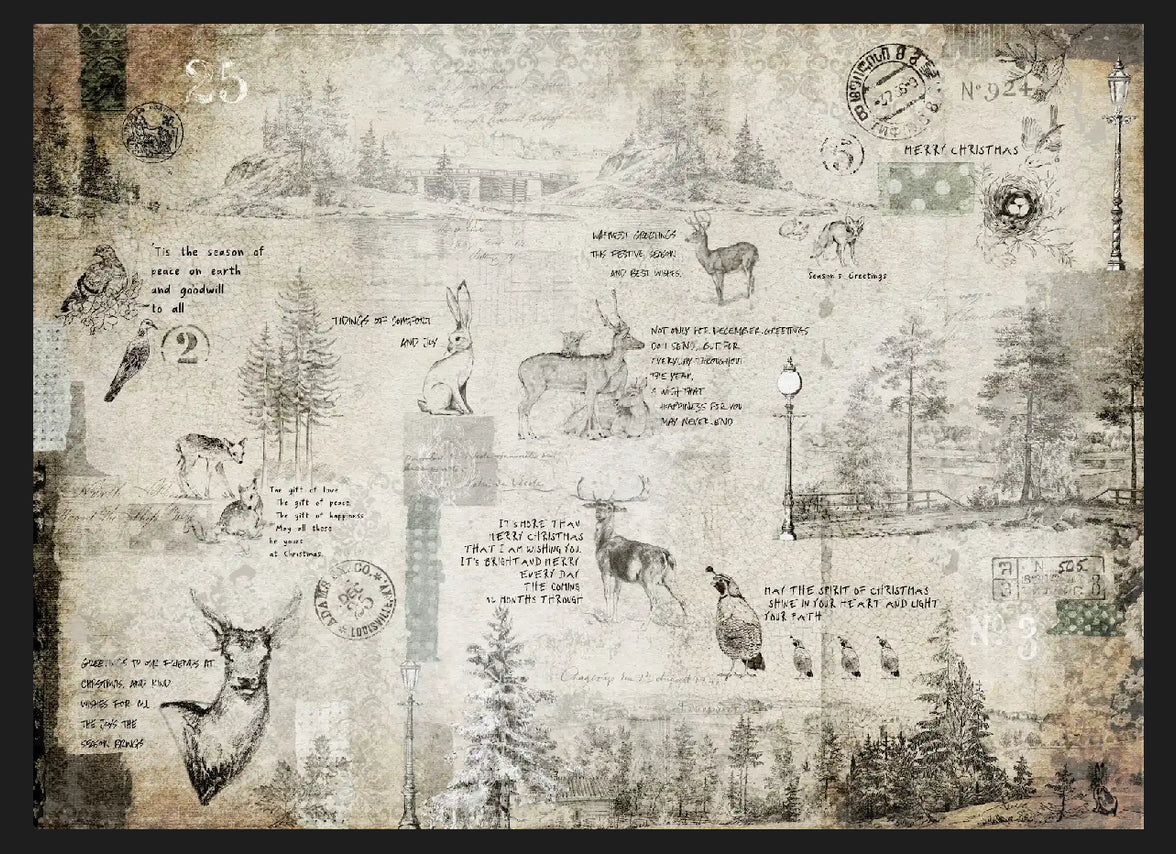 25
Nº 924
5
MERRY CHRISTMAS
'Tis the season of
peace on earth
and goodwill
to all
WARMEST GREETINGS
THIS FESTIVE SEASON
AND BEST WISHES.
Season's Greetings
2
TIDINGS OF COMFORT
AND JOY
NOT ONLY FOR DECEMBER GREETINGS
DO I SEND, BUT FOR
EVERYDAY THROUGHOUT
THE YEAR,
A WISH THAT
HAPPINESS FOR YOU
MAY NEVER END
The gift of love
The gift of peace
The gift of happiness
May all these
be yours
at Christmas.
IT'S MORE THAN
MERRY CHRISTMAS
THAT I AM WISHING YOU.
IT'S BRIGHT AND MERRY
EVERY DAY
THE COMING
12 MONTHS THROUGH
ADAMS CO.
LOUISVILLE
505
MAY THE SPIRIT OF CHRISTMAS
SHINE IN YOUR HEART AND LIGHT
YOUR PATH
Nº 3
GREETINGS TO OUR FRIENDS AT
CHRISTMAS, AND KIND
WISHES FOR ALL
THE JOYS THE
SEASON BRINGS